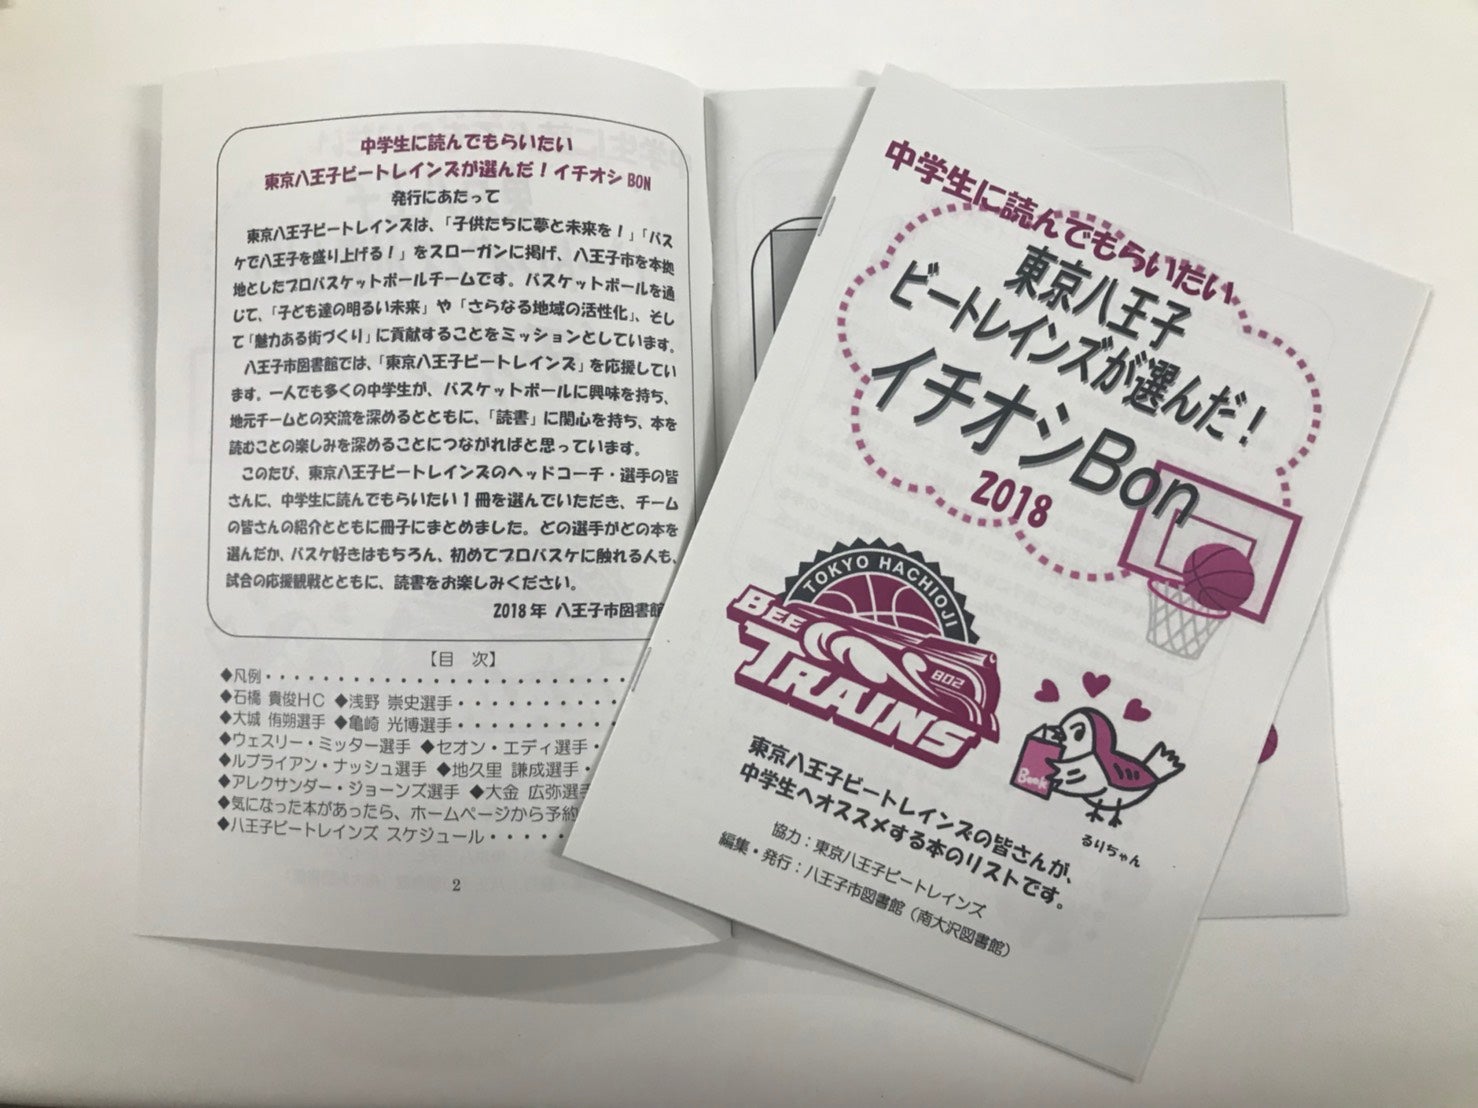 中学生に読んでもらいたい
東京八王子ビートレインズが選んだ！イチオシBON
発行にあたって
東京八王子ビートレインズは、「子供たちに夢と未来を！」「バス
ケで八王子を盛り上げる！」をスローガンに掲げ、八王子市を本拠
地としたプロバスケットボールチームです。バスケットボールを通
じて、「子ども達の明るい未来」や「さらなる地域の活性化」、そし
て「魅力ある街づくり」に貢献することをミッションとしています。
八王子市図書館では、「東京八王子ビートレインズ」を応援してい
ます。一人でも多くの中学生が、バスケットボールに興味を持ち、
地元チームとの交流を深めるとともに、「読書」に関心を持ち、本を
読むことの楽しみを深めることにつながればと思っています。
このたび、東京八王子ビートレインズのヘッドコーチ・選手の皆
さんに、中学生に読んでもらいたい1冊を選んでいただき、チーム
の皆さんの紹介とともに冊子にまとめました。どの選手がどの本を
選んだか、バスケ好きはもちろん、初めてプロバスケに触れる人も、
試合の応援観戦とともに、読書をお楽しみください。
2018年 八王子市図書館
【目 次】
◆凡例・・・・・・・・・・・・・・・・・・・・・・・・
◆石橋 貴俊HC ◆浅野 崇史選手・・・・・・・・・・
◆大城 侑朔選手 ◆亀崎 光博選手・・・・・・・・・・
◆ウェスリー・ミッター選手 ◆セオン・エディ選手・
◆ルブライアン・ナッシュ選手 ◆地久里 謙成選手・
◆アレクサンダー・ジョーンズ選手 ◆大金 広弥選手
◆気になった本があったら、ホームページから予約
◆八王子ビートレインズ スケジュール・・・・・・
2
中学生に読んでもらいたい
東京八王子
ビートレインズが選んだ！
イチオシBon
2018
TOKYO HACHIOJI
BEE
TRAINS
802
Book
るりちゃん
東京八王子ビートレインズの皆さんが、
中学生へオススメする本のリストです。
協力：東京八王子ビートレインズ
編集・発行：八王子市図書館（南大沢図書館）